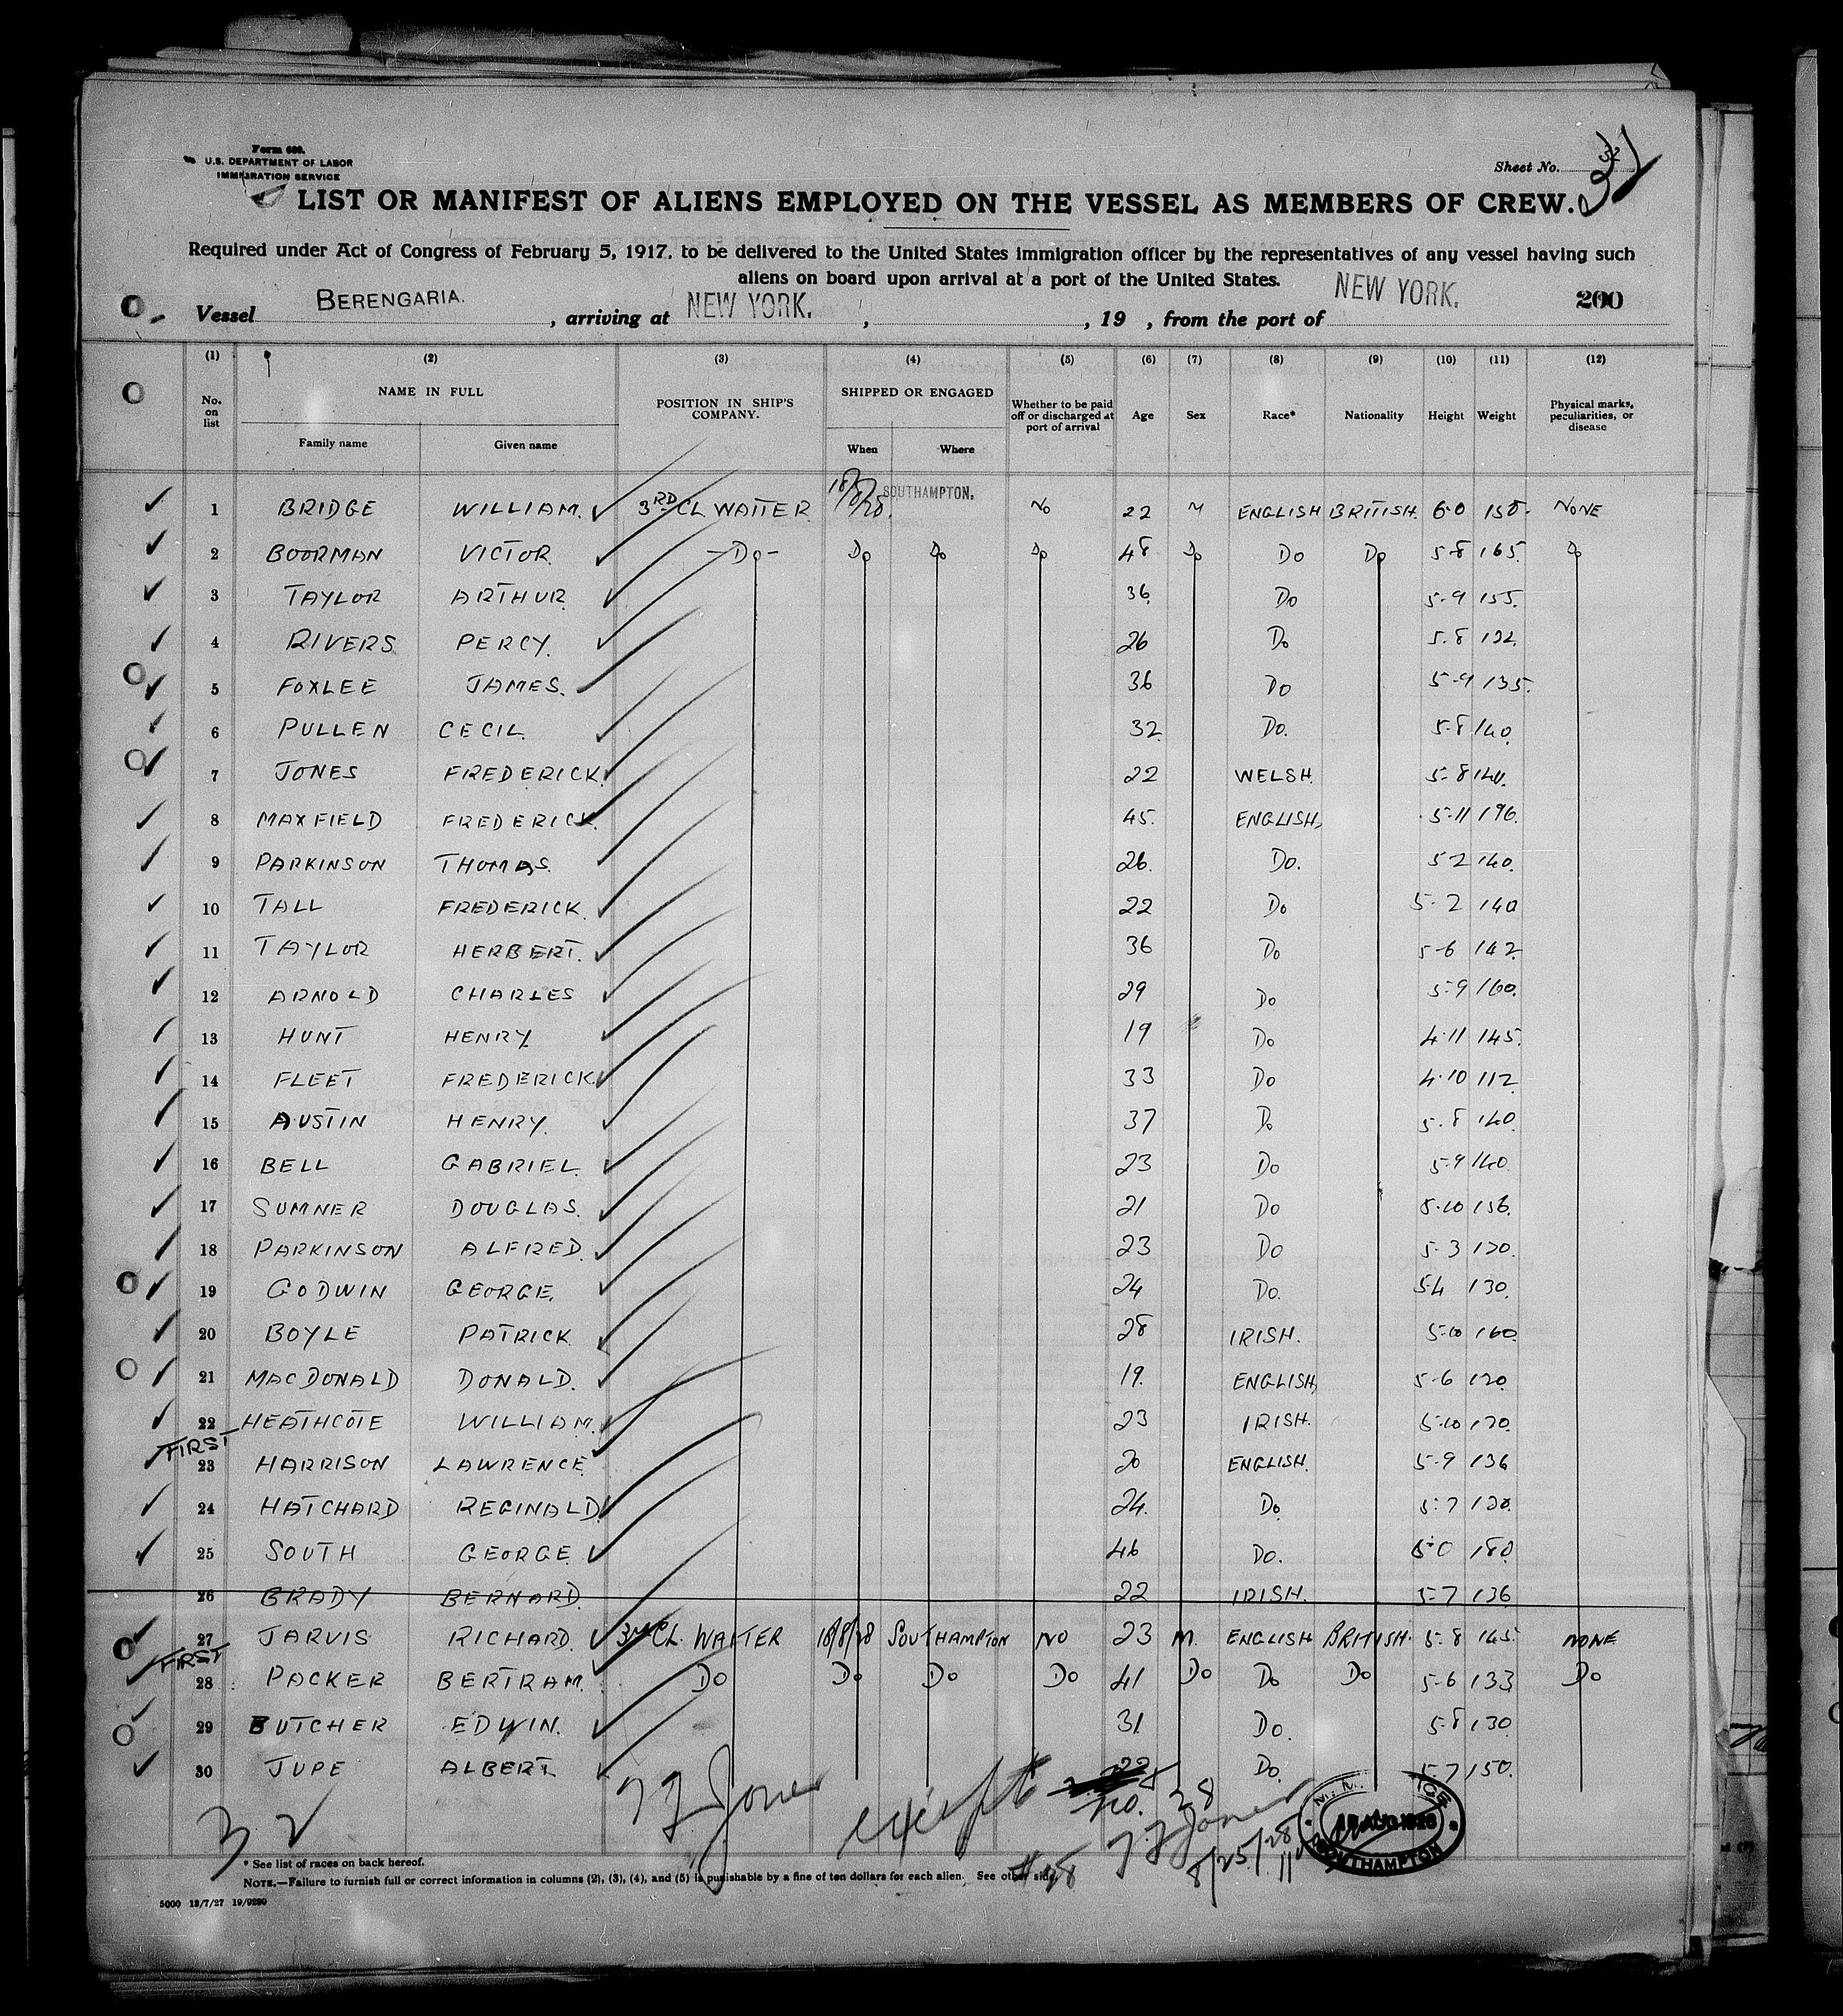 Form 680.
U.S. DEPARTMENT OF LABOR
IMMIGRATION SERVICE
Sheet No. 32
LIST OR MANIFEST OF ALIENS EMPLOYED ON THE VESSEL AS MEMBERS OF CREW.
Required under Act of Congress of February 5, 1917, to be delivered to the United States immigration officer by the representatives of any vessel having such
aliens on board upon arrival at a port of the United States.
Vessel BERENGARIA. , arriving at NEW YORK. , , 19 , from the port of NEW YORK. 200
(1) (2) (3) (4) (5) (6) (7) (8) (9) (10) (11) (12)
No. on list NAME IN FULL Family name Given name POSITION IN SHIP'S COMPANY. SHIPPED OR ENGAGED When Where Whether to be paid off or discharged at port of arrival Age Sex Race* Nationality Height Weight Physical marks, peculiarities, or disease
1 BRIDGE WILLIAM. 3RD CL WAITER 18/8/28. SOUTHAMPTON. No 22 M ENGLISH BRITISH. 6-0 158. NONE
2 BOORMAN VICTOR. -Do- Do Do Do 48 Do Do Do 5-8 165. Do
3 TAYLOR ARTHUR. 36. Do 5-9 155.
4 RIVERS PERCY. 26 Do 5.8 132.
5 FOXLEE JAMES. 36 Do 5-9 135.
6 PULLEN CECIL. 32. Do. 5-8 140.
7 JONES FREDERICK. 22 WELSH. 5-8 140.
8 MAXFIELD FREDERICK. 45. ENGLISH, 5-11 196.
9 PARKINSON THOMAS. 26. Do. 5-2 140.
10 TALL FREDERICK. 22 Do 5-2 140
11 TAYLOR HERBERT. 36 Do 5-6 142.
12 ARNOLD CHARLES 29 Do 5-9 160.
13 HUNT HENRY 19 Do 4.11 145.
14 FLEET FREDERICK. 33 Do 4.10 112
15 AUSTIN HENRY. 37 Do 5.8 140.
16 BELL GABRIEL. 23 Do 5-9 140.
17 SUMNER DOUGLAS. 21 Do 5.10 156.
18 PARKINSON ALFRED. 23 Do 5-3 120.
19 GODWIN GEORGE. 24 Do. 5-4 130.
20 BOYLE PATRICK 28 IRISH. 5-10 160.
21 MACDONALD DONALD. 19. ENGLISH, 5-6 120.
22 HEATHCOTE WILLIAM. 23 IRISH. 5-10 170.
FIRST
23 HARRISON LAWRENCE. 20 ENGLISH. 5-9 136
24 HATCHARD REGINALD. 24. Do 5-7 120.
25 SOUTH GEORGE 46 Do. 180.
26 BRADY BERNARD. 22 IRISH. 5-7 136
27 JARVIS RICHARD. 3rd CL. WAITER 18/8/28 SOUTHAMPTON NO 23 M. ENGLISH BRITISH. 5-8 145. NONE
FIRST
28 PACKER BERTRAM. Do Do Do Do 41 Do Do Do 5-6 133 Do
29 BUTCHER EDWIN. 31. Do. 5-8 130
30 JUPE ALBERT. 22 Do. 5-7 150.
32 Jones except no. 28
#28 Jones 8/25/28
18 AUG 1928 SOUTHAMPTON
* See list of races on back hereof.
NOTE.—Failure to furnish full or correct information in columns (2), (3), (4), and (5) is punishable by a fine of ten dollars for each alien. See other side.
5000 13/7/27 19/9290